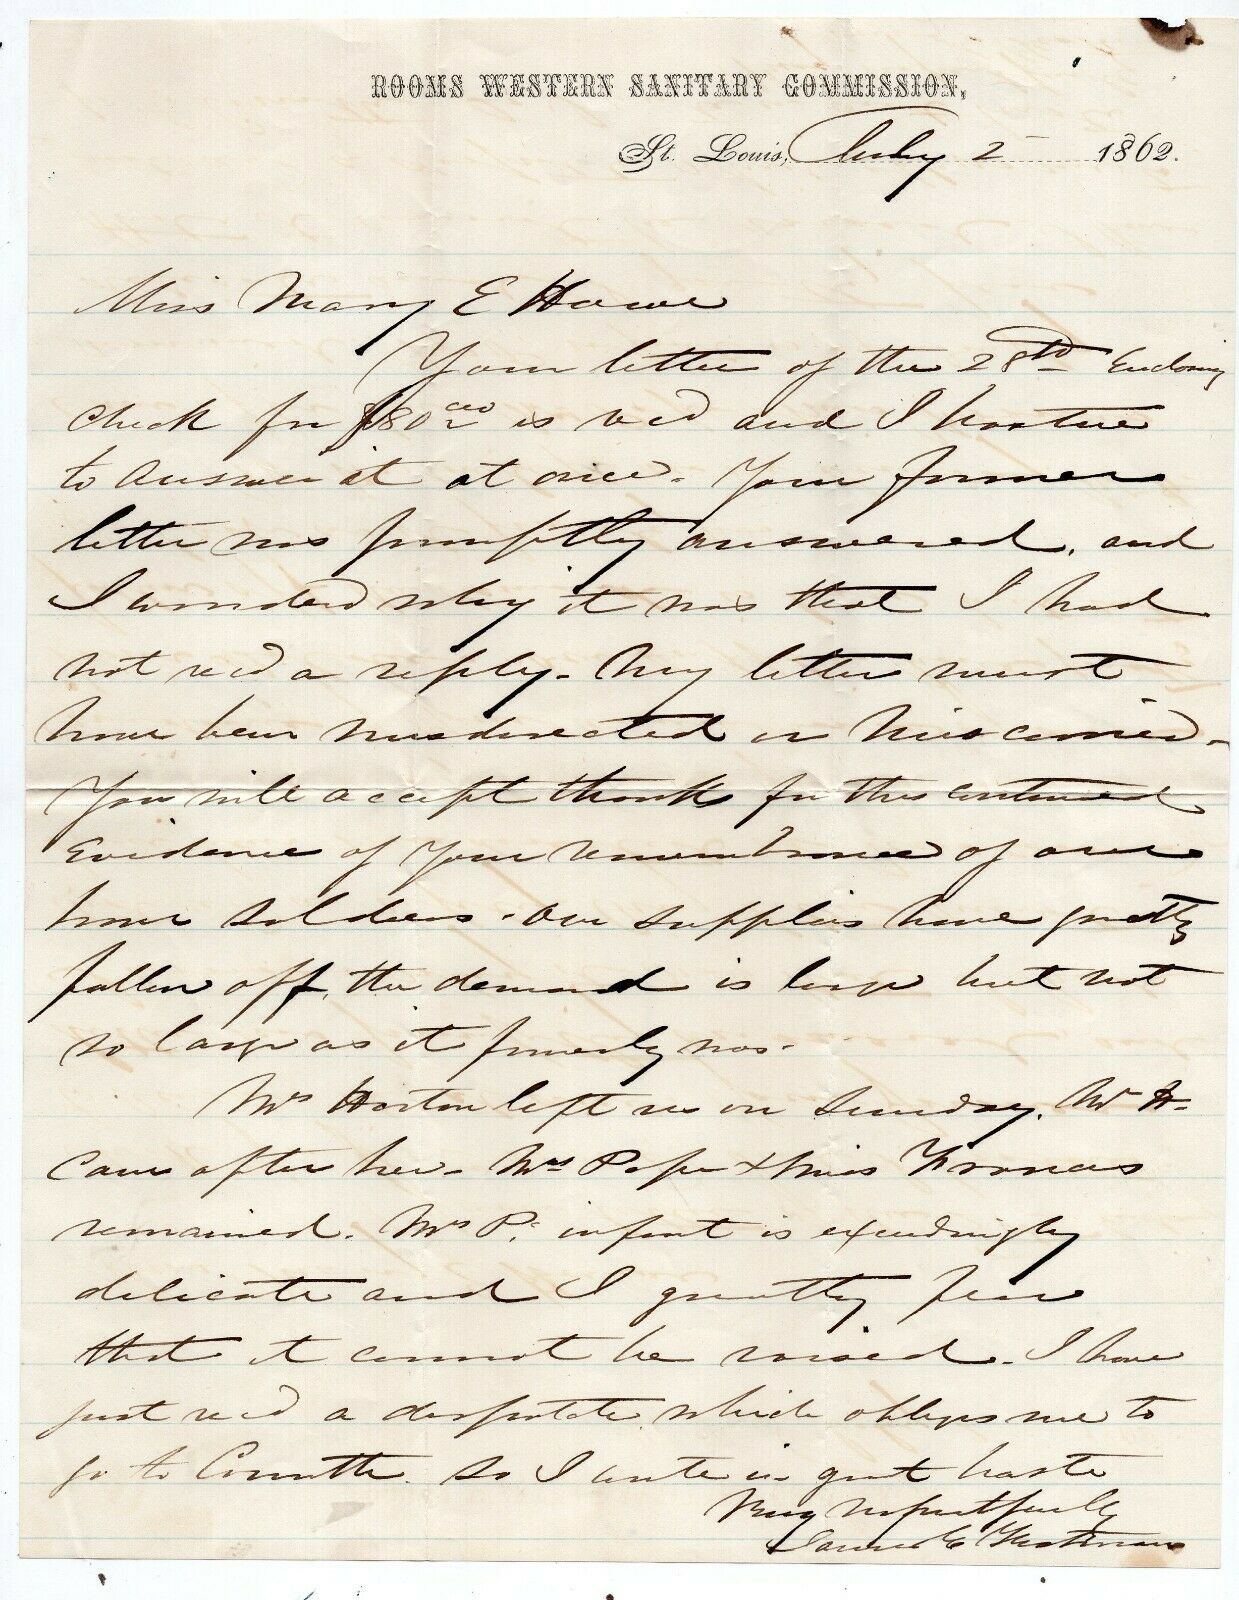 ROOMS WESTERN SANITARY COMMISSION,
St. Louis, July 2 1862.
Miss Mary E Howe
Your letter of the 28th Enclosing
check for $80 00 is recd and I hasten
to answer it at once. Your former
letter was promptly answered, and
I wondered why it was that I had
not recd a reply. My letter must
have been misdirected or miscarried.
You will accept thanks for this continued
Evidence of your remembrance of our
brave soldiers. Our supplies have greatly
fallen off, the demand is large but not
so large as it formerly was.
Mrs Horton left us on Sunday. Mr H.
came after her. Mrs Pope & Miss Frances
remained. Mrs P. infant is exceedingly
delicate and I greatly fear
that it cannot be raised. I have
just recd a despatch which obliges me to
go to Corinth. So I write in great haste
Very respectfully
James E Yeatman